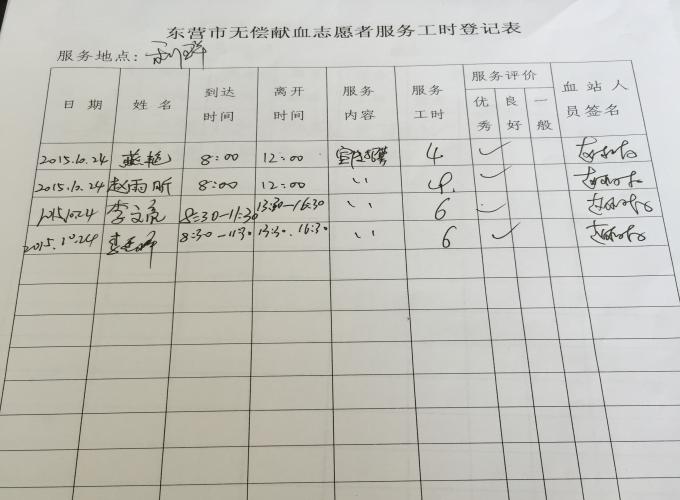 东营市无偿献血志愿者服务工时登记表
服务地点:
日期 姓名 到达时间 离开时间 服务内容 服务工时 服务评价 优秀 良好 一般 血站人员签名
2015.10.24 8:00 12:00 4 ✓
2015.10.24 赵雨昕 8:00 12:00 〃 4 ✓
2015.10.24 李文亮 8:30-11:30 13:30-16:30 〃 6 ✓
2015.10.24 8:30-11:30 13:30-16:30 〃 6 ✓